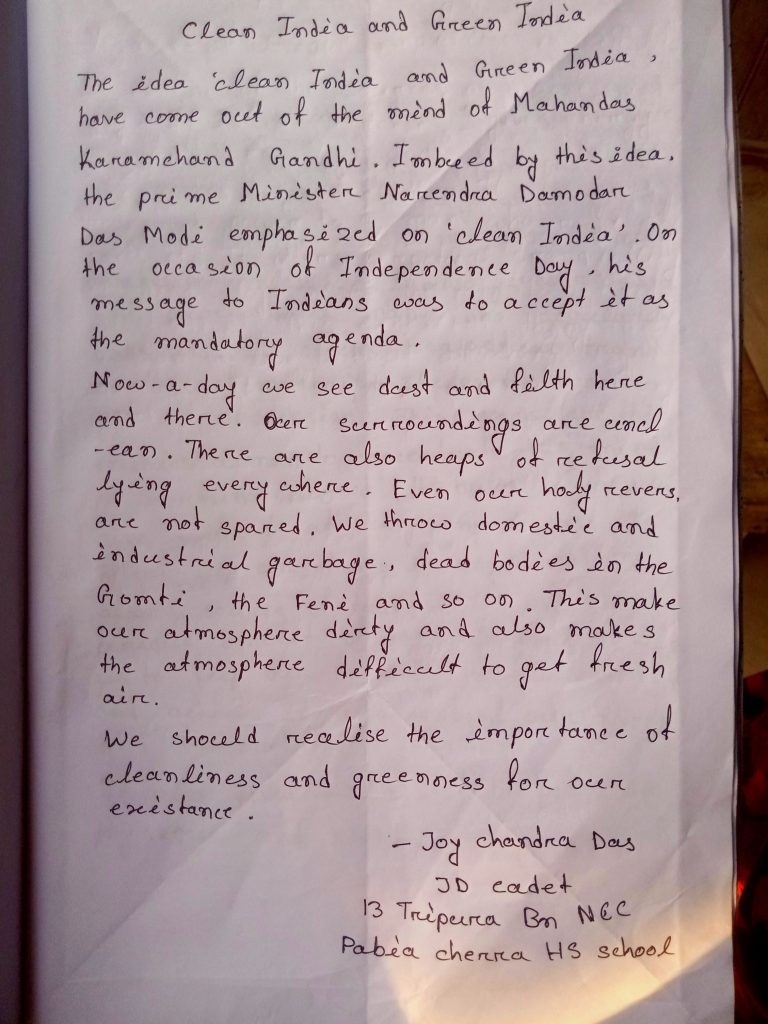 Clean India and Green India
The idea 'clean India and Green India,
have come out of the mind of Mahandas
Karamchand Gandhi. Imbued by this idea.
the prime Minister Narendra Damodar
Das Modi emphasized on 'clean India'. On
the occasion of Independence Day, his
message to Indians was to accept it as
the mandatory agenda.
Now-a-day we see dust and filth here
and there. Our surroundings are uncl
-ean. There are also heaps of refusal
lying everywhere. Even our holy revers,
are not spared. We throw domestic and
industrial garbage, dead bodies in the
Gomti, the Feni and so on. This make
our atmosphere dirty and also makes
the atmosphere difficult to get fresh
air.
We should realise the importance of
cleanliness and greenness for our
existance.
- Joy chandra Das
JD cadet
13 Tripura Bn NCC
Pabia cherra HS school